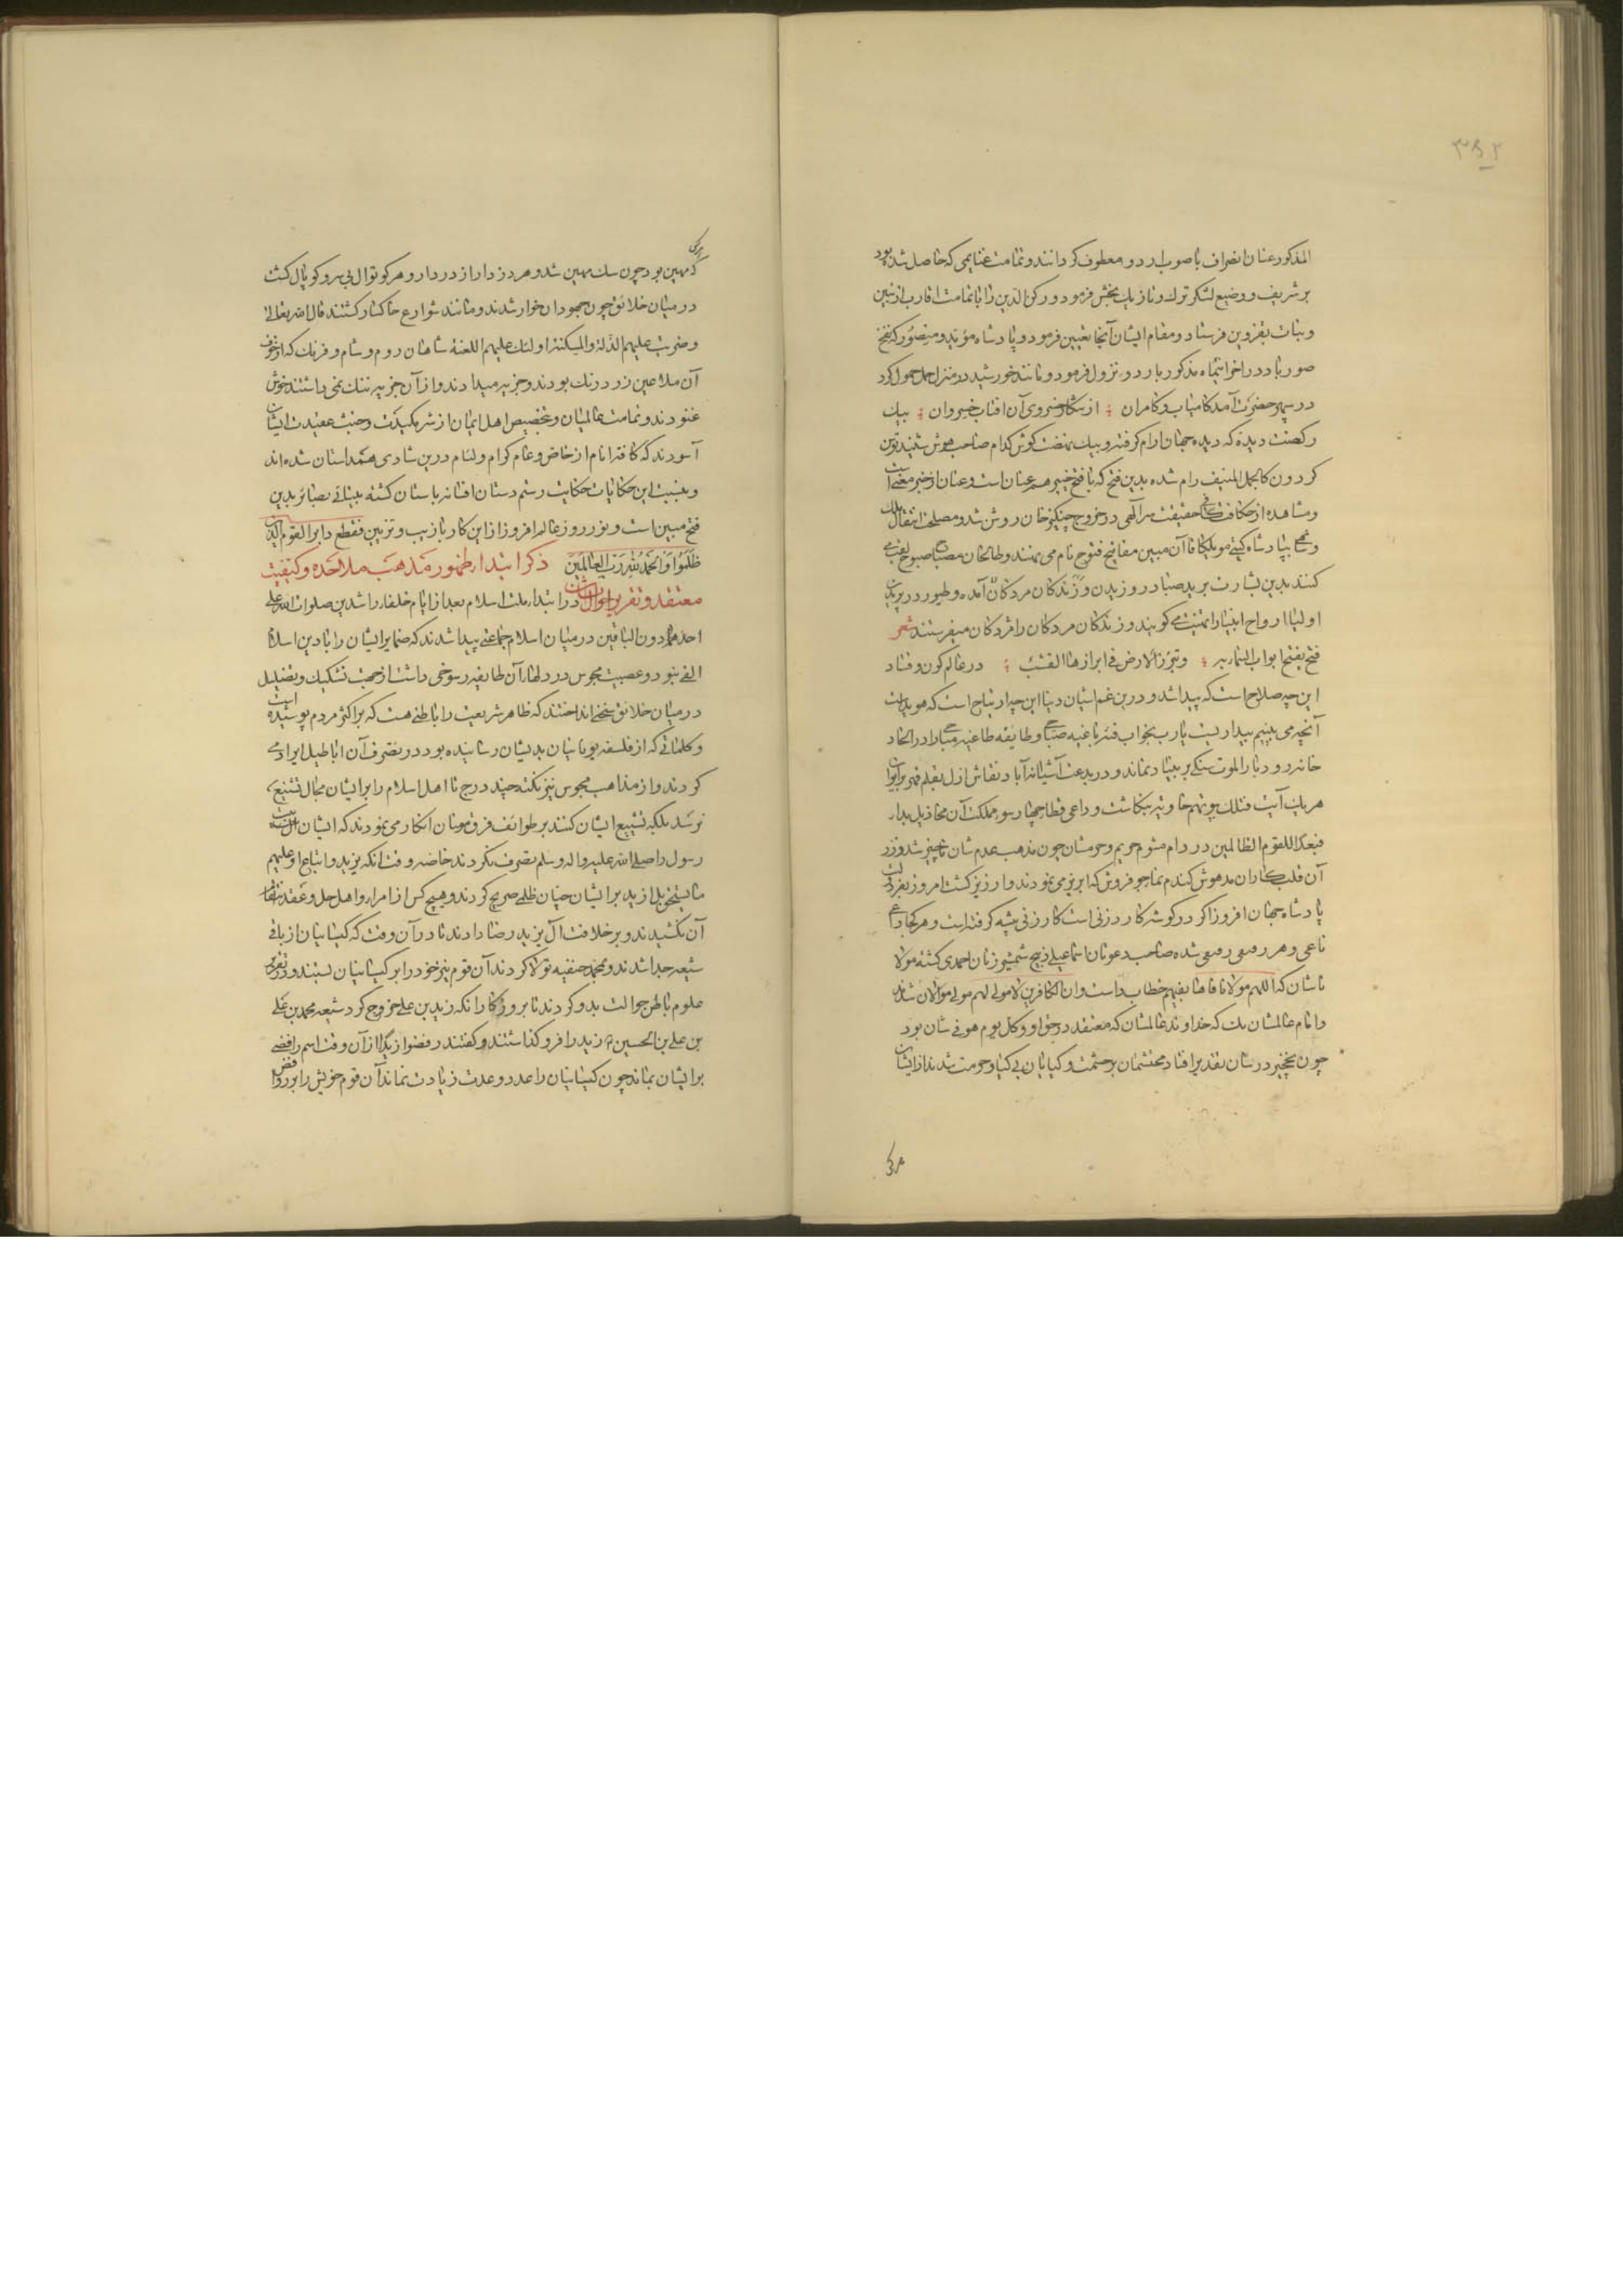 ۳۵۲
المذکور عنان انصراف با صوب اردو معطوف کردانند و تمامت غنایمی که حاصل شده بود
بر شریف و وضیع لشکر ترک و تازیک بخش فرمود و رکن الدین را با تمامت اقارب از بنین
و بنات بقزوین فرستاد و مقام ایشان آنجا تعیین فرمود و پادشاه مؤید و منصور که نفخ
صور باد در اخر ایتماه مذکور باردو نزول فرمود و مانند خورشید در منزل حمل حمول کرد
در سپهر حضرت آمد کامیاب و کامران ؛ از شکار خسروی آن افتاب خسروان ؛ بیک
رکضت دیده که دیده جهان ارام کرفته و بیک نهضت کوش کدام صاحب هوش شنید توسن
کردون کالجمل المنیف رام شده بدین فتح که با فتح خیبر هم عنان است و عیان از خبر مغنی است
و مشاهده از حکایت کافی حقیقت سر آلهی در خروج چنکیز خان روشن شد و مصلحت انتقال ملک
و شاهی بپادشاه کیتی مونککا قاآن مبین مفاتیح فتوح نام می نهند و طایحان مصباح صبوح لقب می
کنند بدین بشارت برید صبا در وزیدن و زندکان مردکان آمده و طیور در پریدن
اولیا ارواح انبیا را تهنیت می کویند و زندکان مردکان را مژدکان میفرستند شعر
فتح تفتح ابواب السماء به ؛ و تبرز الارض فی ابرازها القشب ؛ در عالم کون و فساد
این چه صلاح است که پیدا شد و درین غم اشیان دنیا این چه ارتیاح است که هویداست
آنچه می بینم بیداریست یا رب بخواب فئه باغیه صباحی و طایفه طاغیه مباحی را در الحاد
خانه رودبار الموت سنکی بر بنیاد نماند و در بدعت آشیانه آباد نقاش ازل بقلم قهر بر ایوان
هر یک آیت فتلک بیوتهم خاویه بنکاشت و داعی قضا بر چهار سوء مملکت آن مخاذیل بداء
فبعدا للقوم الظالمین در داد مشوم حریم و حرمشان چون مذهب عدم شان ناچیز شد و زر
آن قلب کاران مدهوش کندم نمای جو فروش که ابریز می نمودند وارزیز کشت امروز بفر دولت
پادشاه جهان افروز اکر در کوشه کارد زنی است کار زنی پیشه کرفته است و هر کجا داعی
ناعی و هر رفیقی رقیقی شده صاحب دعوتان اسماعیلی ذبیح شمشیر زنان احمدی کشته مولا
ناشان که اللهم مولانا فاغثنا بفیهم خطاب داشت وان الکافرین لا مولی لهم مولی موالان شدند
و امام عالمشان بلک خداوند عالمشان که معتقد در حق او و کل یوم هو فی شان بود
چون نخچیر در شان تقدیر افتاد محتشمان بی حشمت و کیایان بی کیا و حرمت شدند از ایشان
هرکی
هرکی
که مهین بود چون سک مهین شد و هر دزدار از در دار و هر کوتوال بی سر و کوپال کشت
در میان خلائق چون جهودان خوار شدند و مانند شوارع خاکسار کشتند قال الله تعالی
و ضربت علیهم الذلة والمسکنة اولئک علیهم اللعنة شاهان روم و شام و فرنک که از خوف
آن ملاعین زرد رنک بودند و جزیه میدادند و از آن جزیه ننک نمی داشتند خوش
غنودند و تمامت عالمیان و بتخصیص اهل ایمان از شر مکیدت و خبث عقیدت ایشان
آسودند که کافه انام از خاص و عام کرام و لئام درین شادی همداستان شده اند
و بنسبت این حکایات حکایت رستم دستان افسانه باستان کشته بینائی بصائر بدین
فتح مبین است و نور روز عالم افروز از این کار با زیب و تزیین فقطع دابر القوم الذین
ظلموا والحمد لله رب العالمین ذکر ابتداء ظهور مذهب ملاحده و کیفیت
معتقد و تقریر احوال ایشان در ابتداء ملت اسلام بعد از ایام خلفاء راشدین صلوات الله علی
احدهما دون الباقین در میان اسلام جماعتی پیدا شدند که ضمایر ایشان را با دین اسلام
الفی نبود و عصبیت مجوس در دلهاء آن طایفه رسوخی داشت از جهت تشکیک و تضلیل
در میان خلائق سخنی انداختند که ظاهر شریعت را باطنی هست که بر اکثر مردم پوشیده است
و کلماتی که از فلسفه یونانیان بدیشان رسانیده بود در تصرف آن اباطیل ایراد می
کردند و از مذاهب مجوس نیز نکته چند درج تا اهل اسلام را بر ایشان مجال تشنیع
نرسد بلکه تشییع ایشان کنند بر طوایف فرق مومنان انکار می نمودند که ایشان اهل بیت
رسول را صلی الله علیه و اله و سلم نصرت نکردند خاصه وقت آنکه یزید و اتباع او علیهم
ما یستحق بل ازید بر ایشان چنان ظلمی صریح کردند و هیچ کس از امراء و اهل حل و عقد انتقام
آن نکشیدند و بر خلافت آل یزید رضا دادند تا در آن وقت که کیسانیان از باقی
شیعه جدا شدند و بمحمد حنفیه تولا کردند آن قوم نیز خود را بر کیسانیان بستند و در تقریر
علوم باطن حوالت بدو کردند تا بروزکار آنکه زید بن علی خروج کرد شیعه محمد بن علی
بن علی بن الحسین ع زید را فرو کذاشتند و کفتند رفضوا زیدا از آن وقت اسم رافضی
بر ایشان بماند چون کیسانیان را عدد و عدت زیادت نماند آن قوم خویش را بر روافض